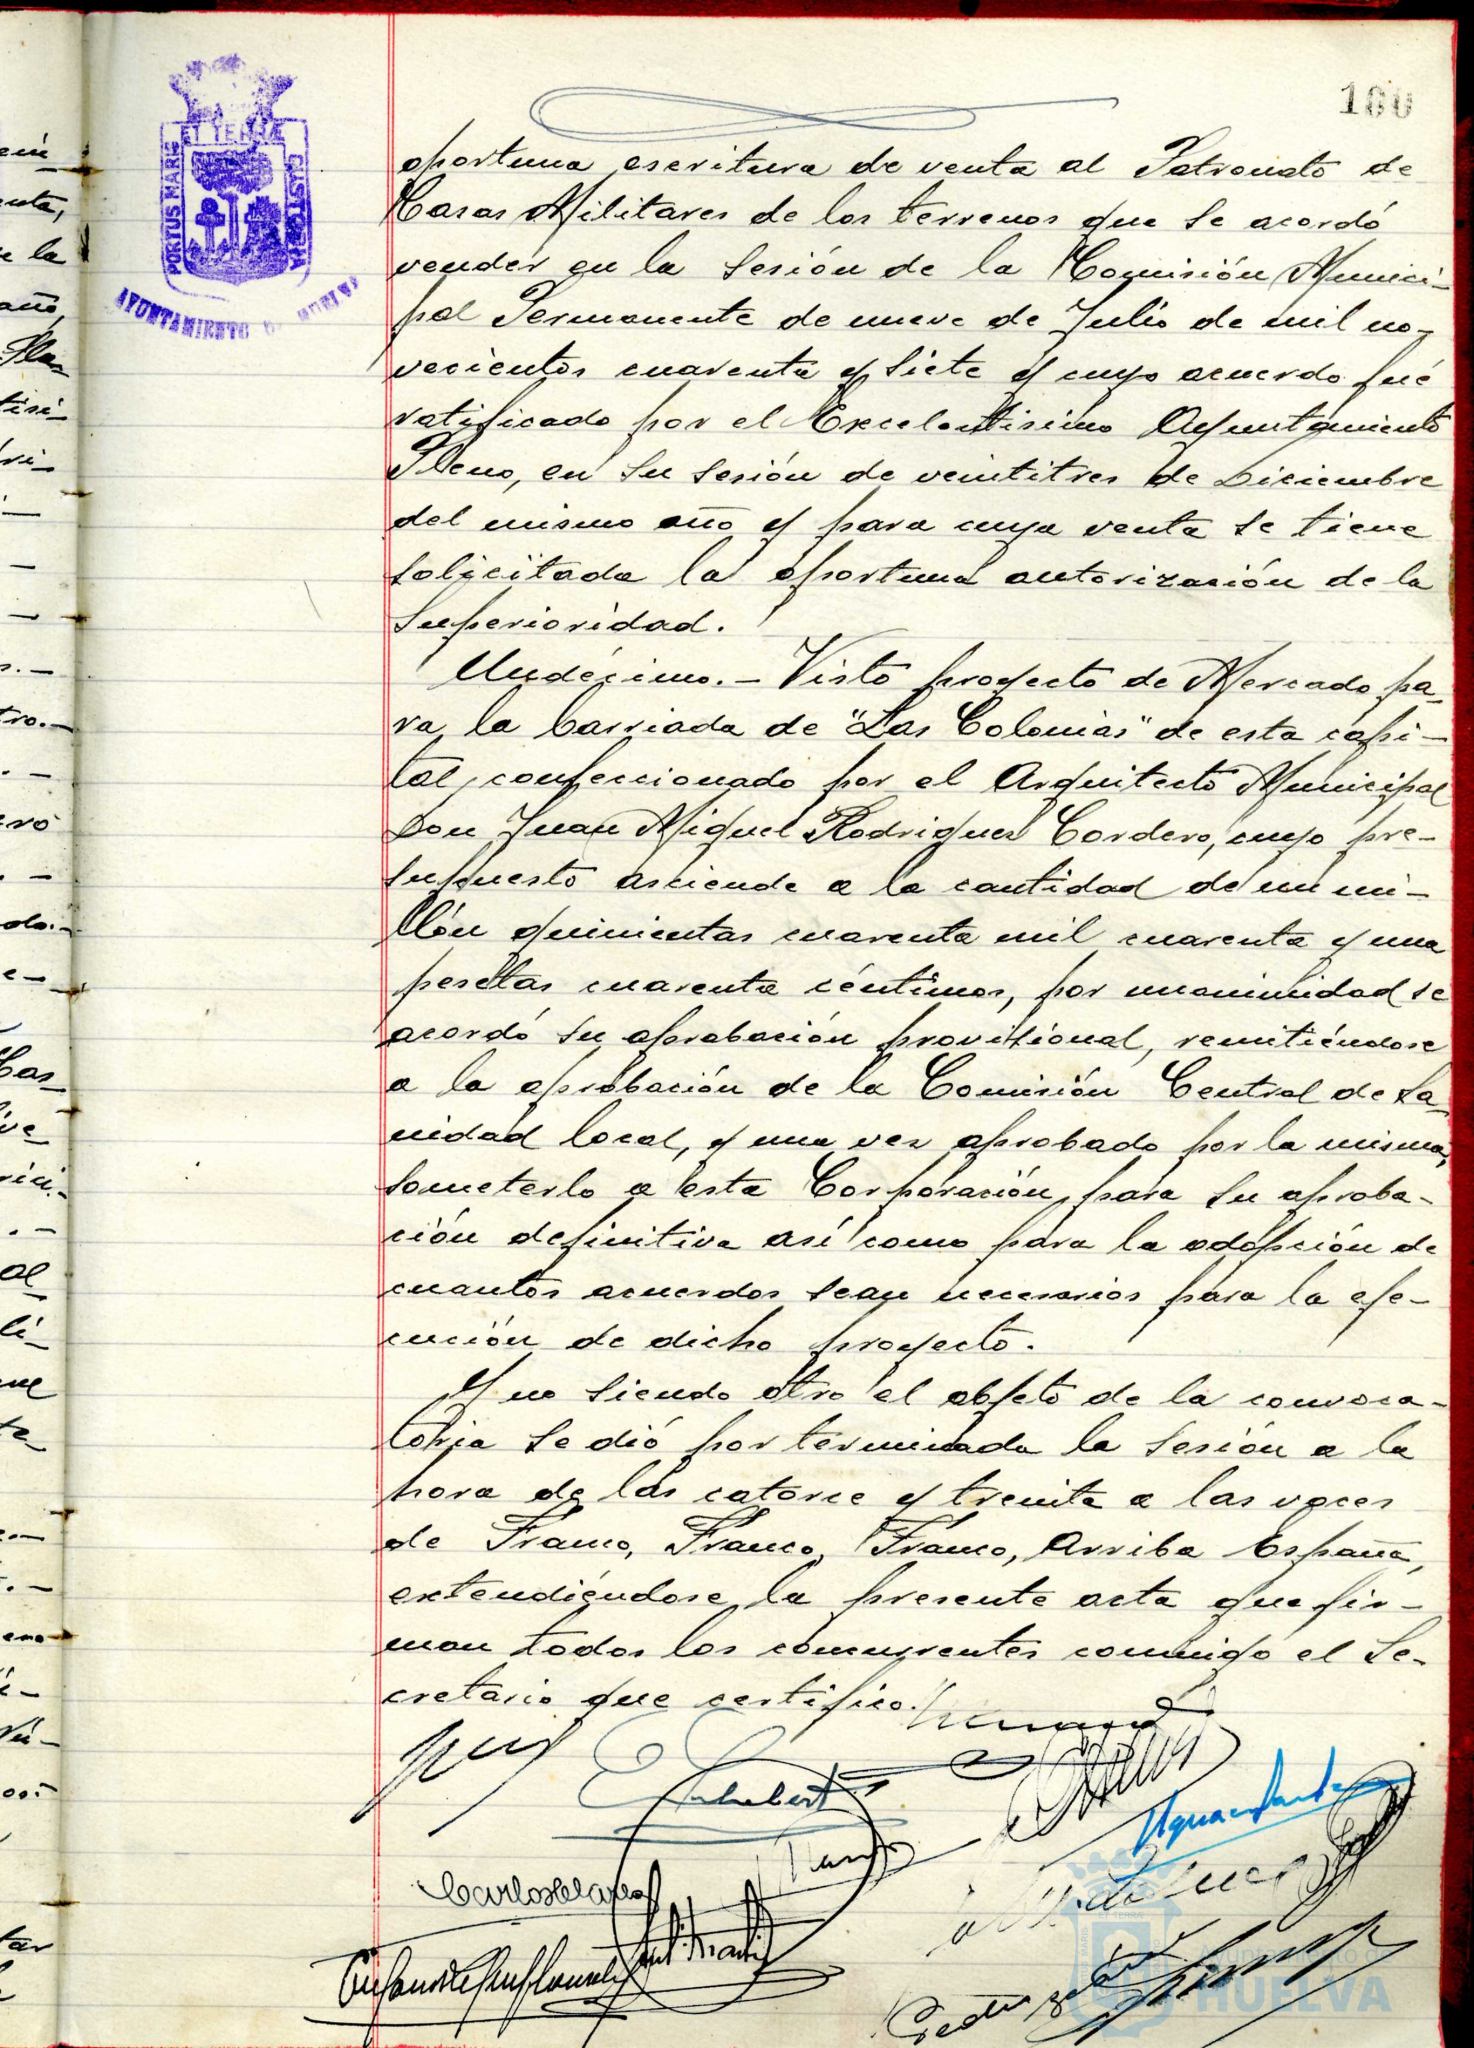 160
PORTUS MARIS ET TERRÆ CUSTODIA
AYUNTAMIENTO DE HUELVA
oportuna escritura de venta al Patronato de
Casas Militares de los terrenos que se acordó
vender en la Sesión de la Comisión Munici-
pal Permanente de nueve de Julio de mil no-
vecientos cuarenta y siete y cuyo acuerdo fué
ratificado por el Excelentisimo Ayuntamiento
Pleno, en su sesión de veintitres de Diciembre
del mismo año y para cuya venta se tiene
solicitada la oportuna autorización de la
Superioridad.
Undécimo.- Visto proyecto de Mercado pa-
ra la barriada de "Las Colonias" de esta capi-
tal, confeccionado por el Arquitecto Municipal
Don Juan Miguel Rodriguez Cordero, cuyo pre-
supuesto asciende a la cantidad de un mi-
llón quinientas cuarenta mil cuarenta y una
pesetas cuarenta céntimos, por unanimidad se
acordó su aprobación provisional, remitiéndose
a la aprobación de la Comisión Central de Sa-
nidad local, y una vez aprobado por la misma,
someterlo a esta Corporación para su aproba-
ción definitiva así como para la adopción de
cuantos acuerdos sean necesarios para la eje-
cución de dicho proyecto.
Y no siendo otro el objeto de la convoca-
toria se dió por terminada la sesión a la
hora de las catorce y treinta a las voces
de Franco, Franco, Franco, Arriba España,
extendiéndose la presente acta que fir-
man todos los concurrentes conmigo el Se-
cretario que certifico.
Ayuntamiento de
HUELVA